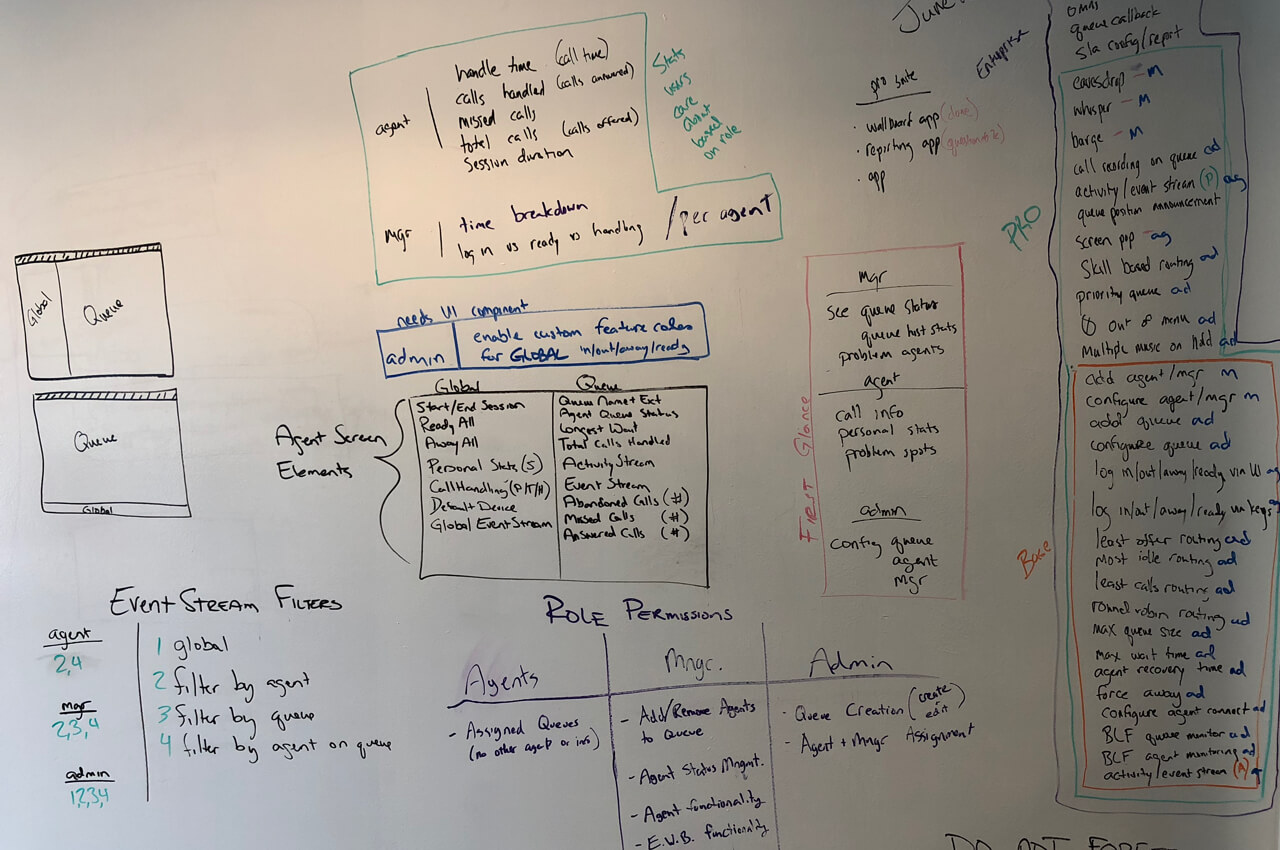 June
agent
handle time (call time)
calls handled (calls answered)
missed calls
total calls (calls offered)
Session duration
mgr
time breakdown
log in vs ready vs handling
/per agent
Stats
users
care
about
based
on role
pro suite
· wallboard app (done)
· reporting app (questionable)
· app
Enterprise
queue callback
Sla config/report
PRO
eavesdrop - M
whisper - M
barge - M
call recording on queue ad
activity/event stream (P) ag
queue position announcement
screen pop - ag
Skill based routing ad
priority queue ad
out of menu ad
Multiple music on Hold ad
Base
add agent/mgr m
configure agent/mgr m
add queue ad
configure queue ad
log in/out/away/ready via UI
log in/out/away/ready via keys
least offer routing ad
most idle routing ad
least calls routing ad
round robin routing ad
max queue size ad
max wait time ad
agent recovery time ad
force away ad
configure agent connect ad
BLF queue monitor ad
BLF agent monitoring ad
activity/event stream (A)
Global
Queue
Queue
Global
needs UI component
admin
enable custom feature codes
for GLOBAL in/out/away/ready
Agent Screen
Elements
Global
Start/End Session
Ready All
Away All
Personal Stats (5)
Call Handling (P/T/H)
Default Device
Global Event Stream
Queue
Queue Name + Ext
Agent Queue Status
Longest Wait
Total Calls Handled
Activity Stream
Event Stream
Abandoned Calls (#)
Missed Calls (#)
Answered Calls (#)
First Glance
mgr
see queue status
queue hist stats
problem agents
agent
call info
personal stats
problem spots
admin
config queue
agent
mgr
Event Stream Filters
agent
2,4
mgr
2,3,4
admin
1,2,3,4
1 global
2 filter by agent
3 filter by queue
4 filter by agent on queue
Role Permissions
Agents
- Assigned Queues
(no other agent or info)
Mngr.
- Add/Remove Agents
to Queue
- Agent Status Mngmt.
- Agent functionality
- E.W.B. functionality
Admin
- Queue Creation (create
edit)
- Agent + Mngr Assignment
DO NOT